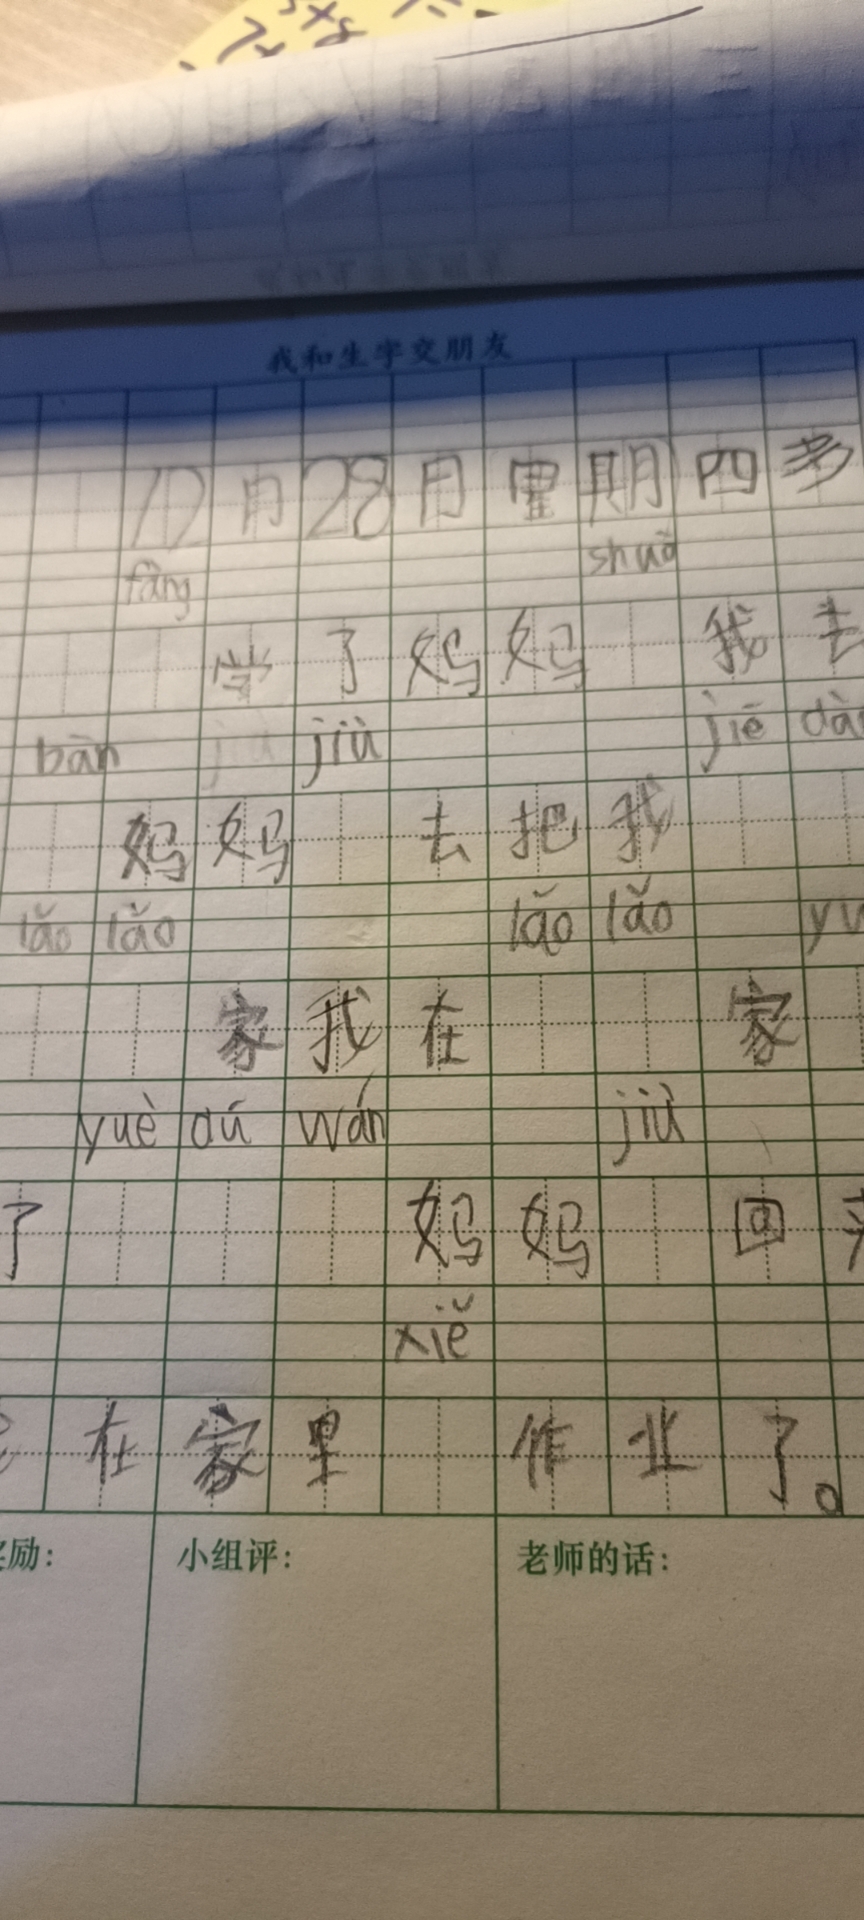 我和生字交朋友
12月28日星期四多
fàng shuō
学了妈妈 我去
bān jiù jiē
妈妈 去把我
lǎo lǎo lǎo lǎo
家我在 家
yuè dú wán jiù
了 妈妈 回
xiě
在家里 作业了。
励:
小组评:
老师的话: